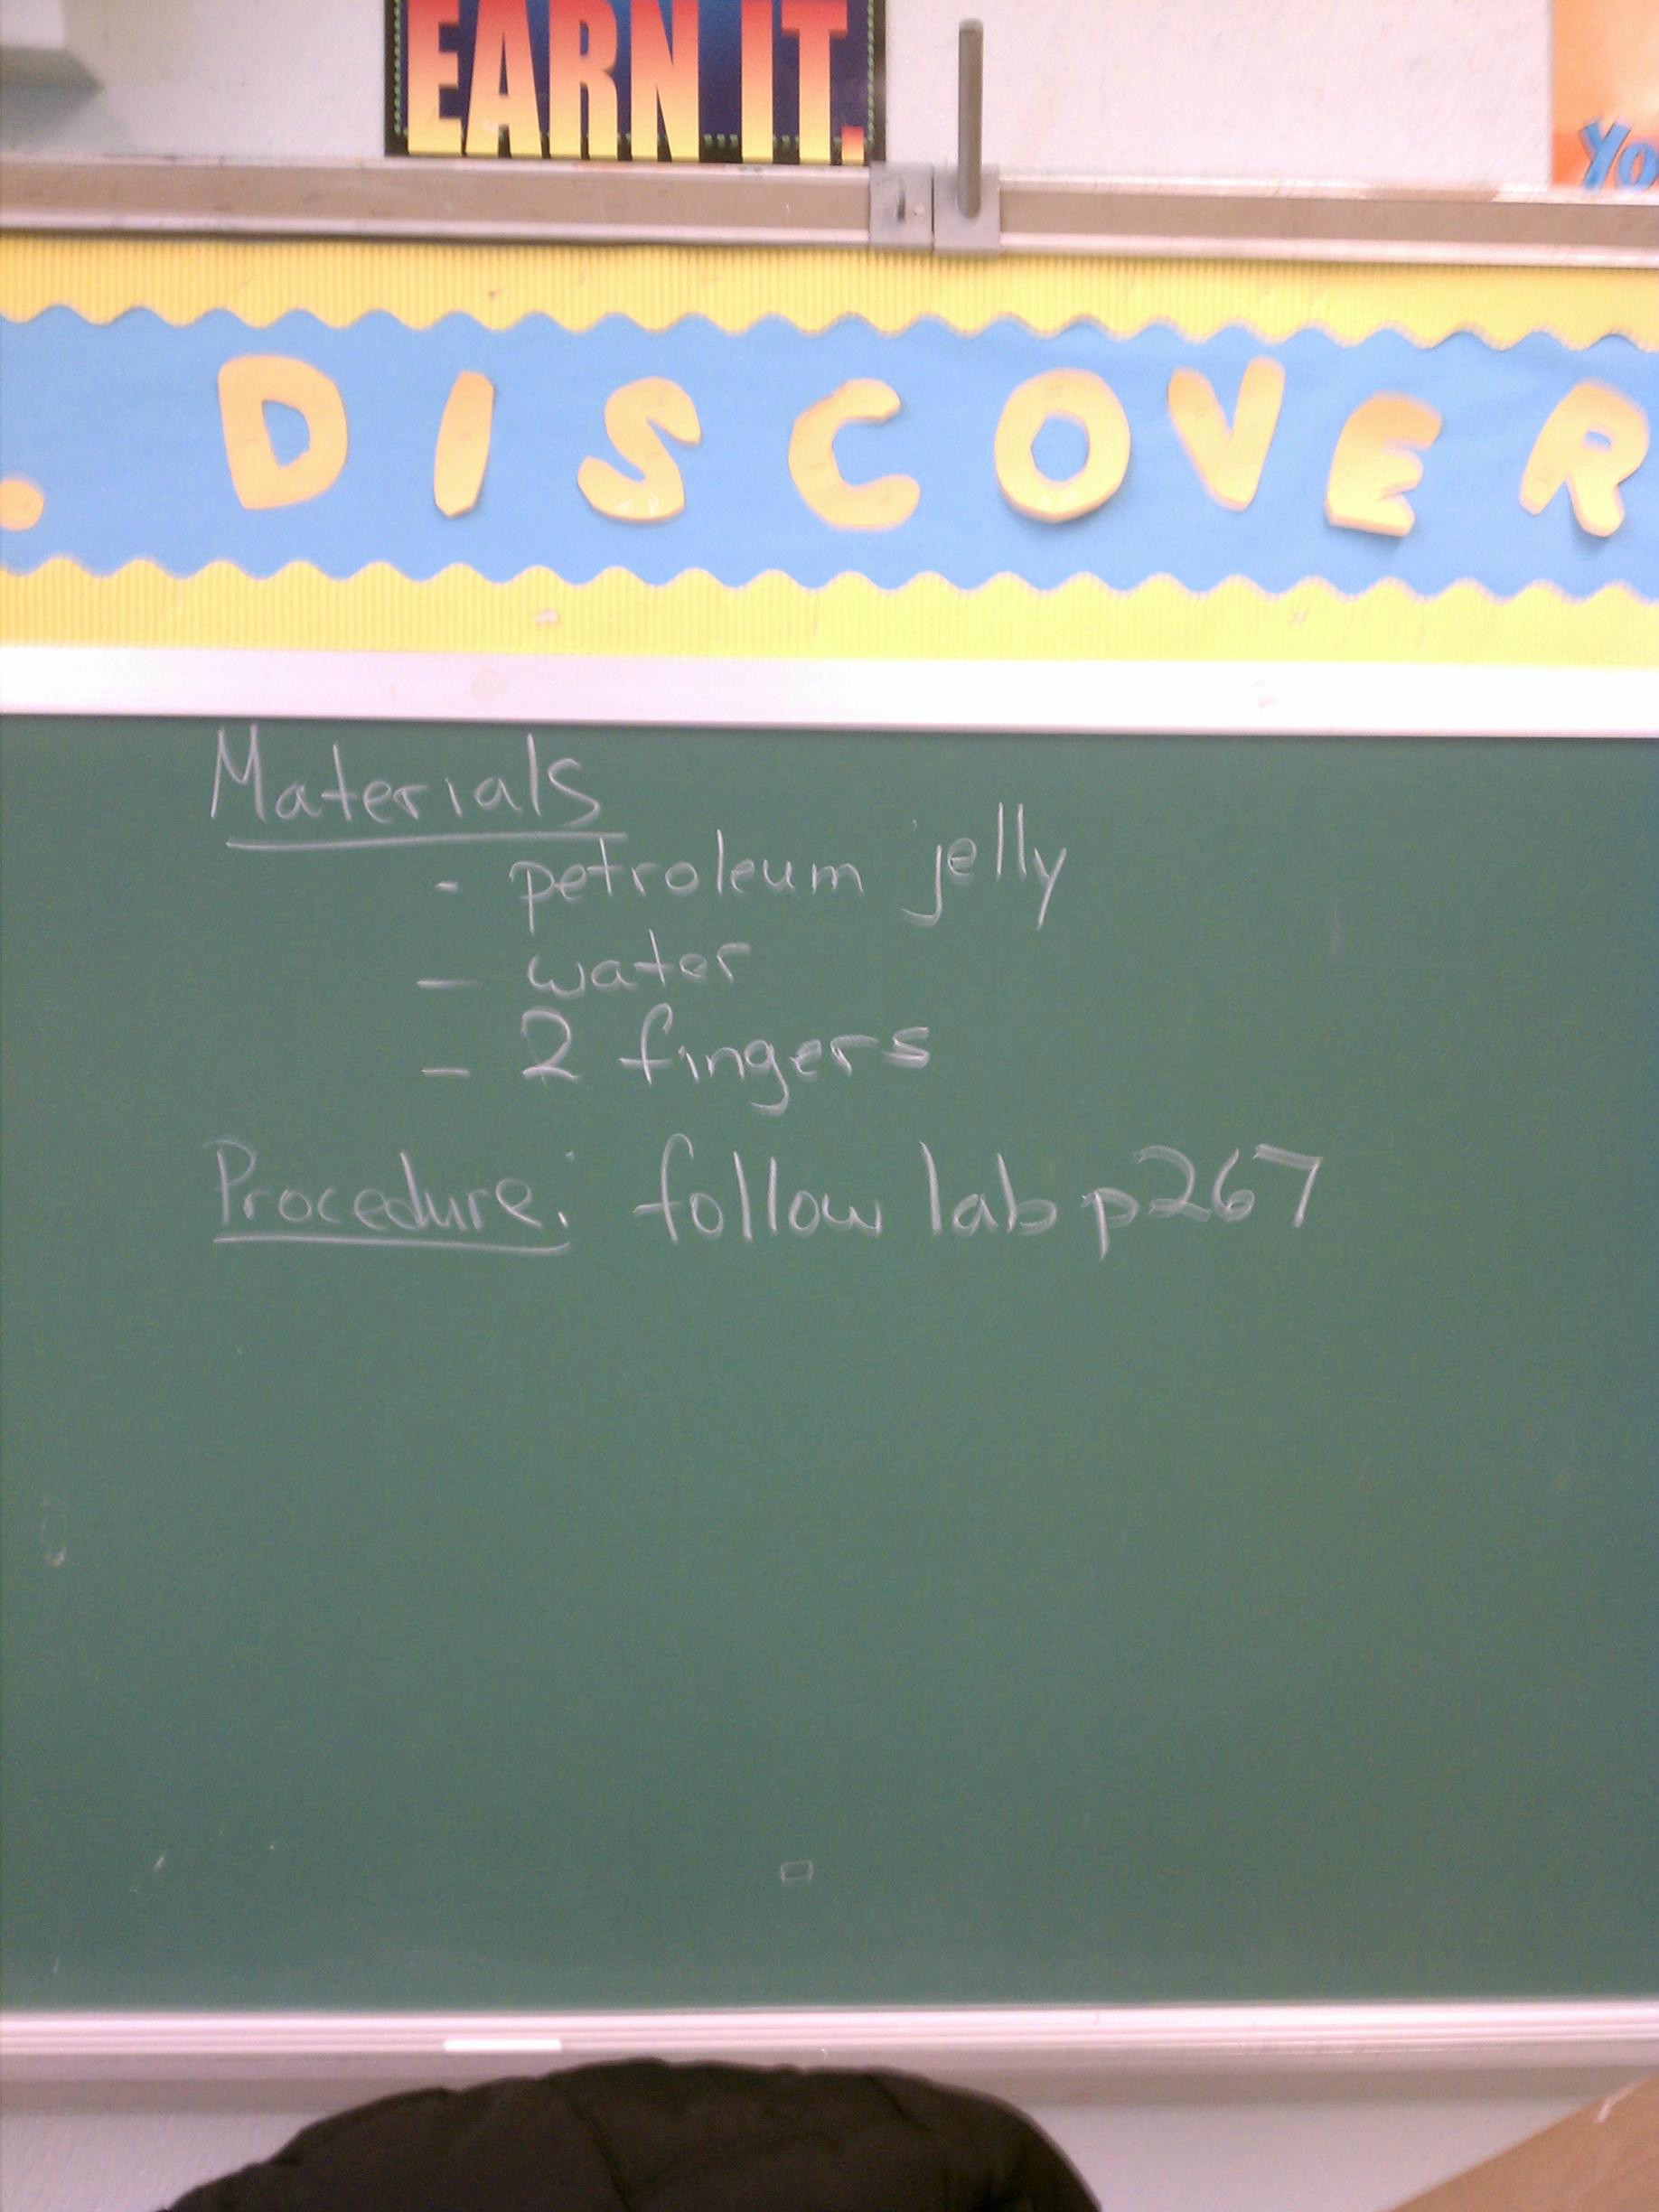 EARN IT.
Yo
. DISCOVER
Materials
- petroleum jelly
- water
- 2 fingers
Procedure: follow lab p267